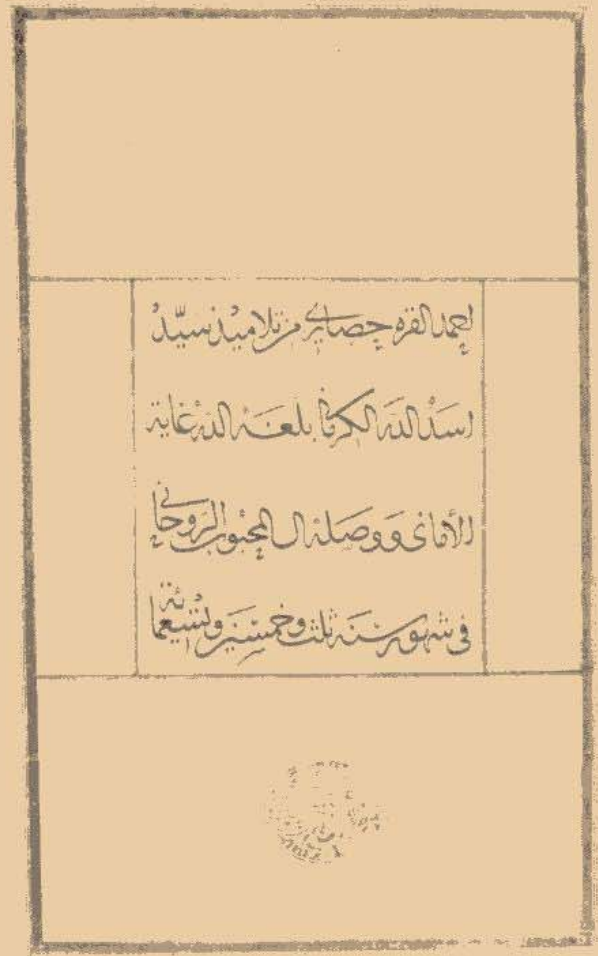 احمد القره حصاري من تلاميذ سيّد
اسد الله الكرماني بلغه الله غاية
الأماني ووصله الى المحبوب الروحاني
في شهور سنة ثلث وخمسين وتسعمائة